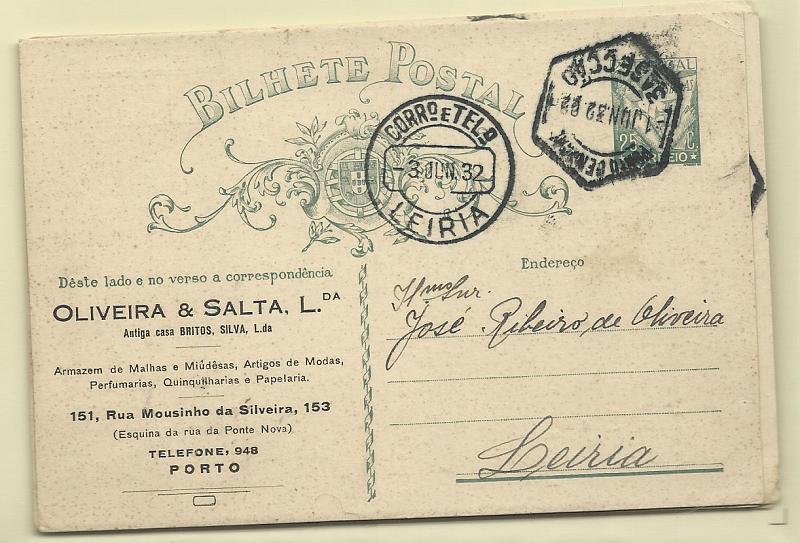 BILHETE POSTAL
CORRO E TELO
-3.JUN.32
LEIRIA
SECÇÃO
1 JUN. 32
PORTO CENTRAL
25 C.
CORREIO
Dêste lado e no verso a correspondência
OLIVEIRA & SALTA, L.DA
Antiga casa BRITOS, SILVA, L.da
Armazem de Malhas e Miúdêsas, Artigos de Modas,
Perfumarias, Quinquilharias e Papelaria.
151, Rua Mousinho da Silveira, 153
(Esquina da rua da Ponte Nova)
TELEFONE, 948
PORTO
Endereço
Illmo Snr.
José Ribeiro de Oliveira
Leiria